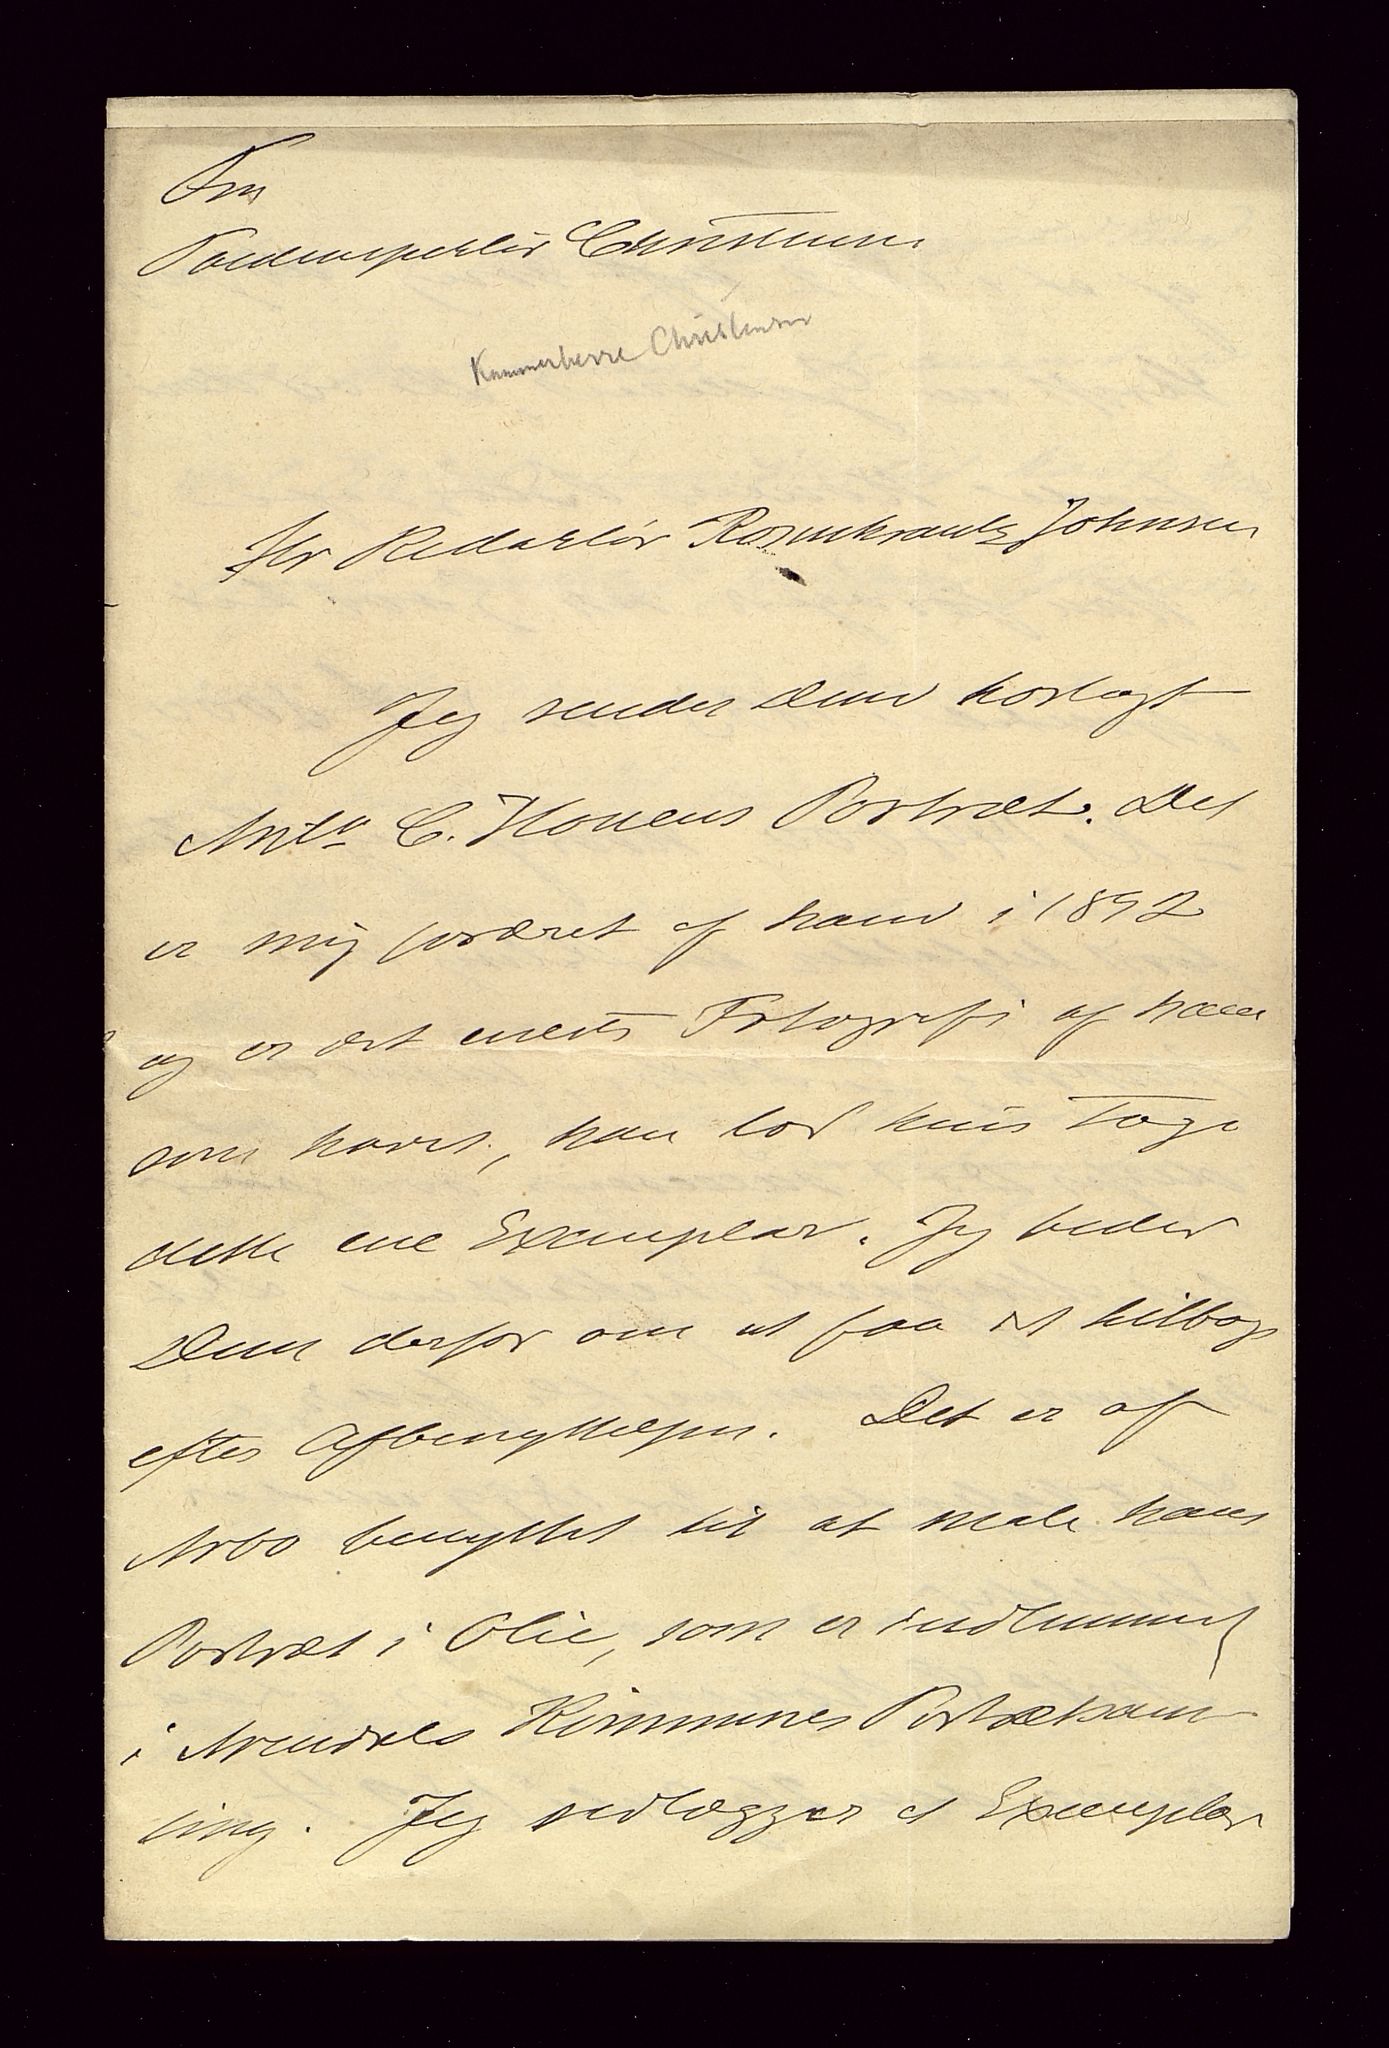 Fra
Toldinspektør Christensen
Kammerherre Christensen
Hr Redaktør Rosenkrantz Johnsen
Jeg sender Dem hoslagt
Ant. C. Houens Portræt. Det
er mig foræret af ham i 1892
og er det eneste Fotografi af ham
som haves, han lod kun tage
dette ene Exemplar. Jeg beder
Dem derfor om at faa det tilbage
efter Afbenyttelsen. Det er af
Arbo benyttet til at male hans
Portræt i Olie, som er indlemmet
i Arendals Kommunes Portrætsam-
ling. Jeg vedlægger et Exemplar